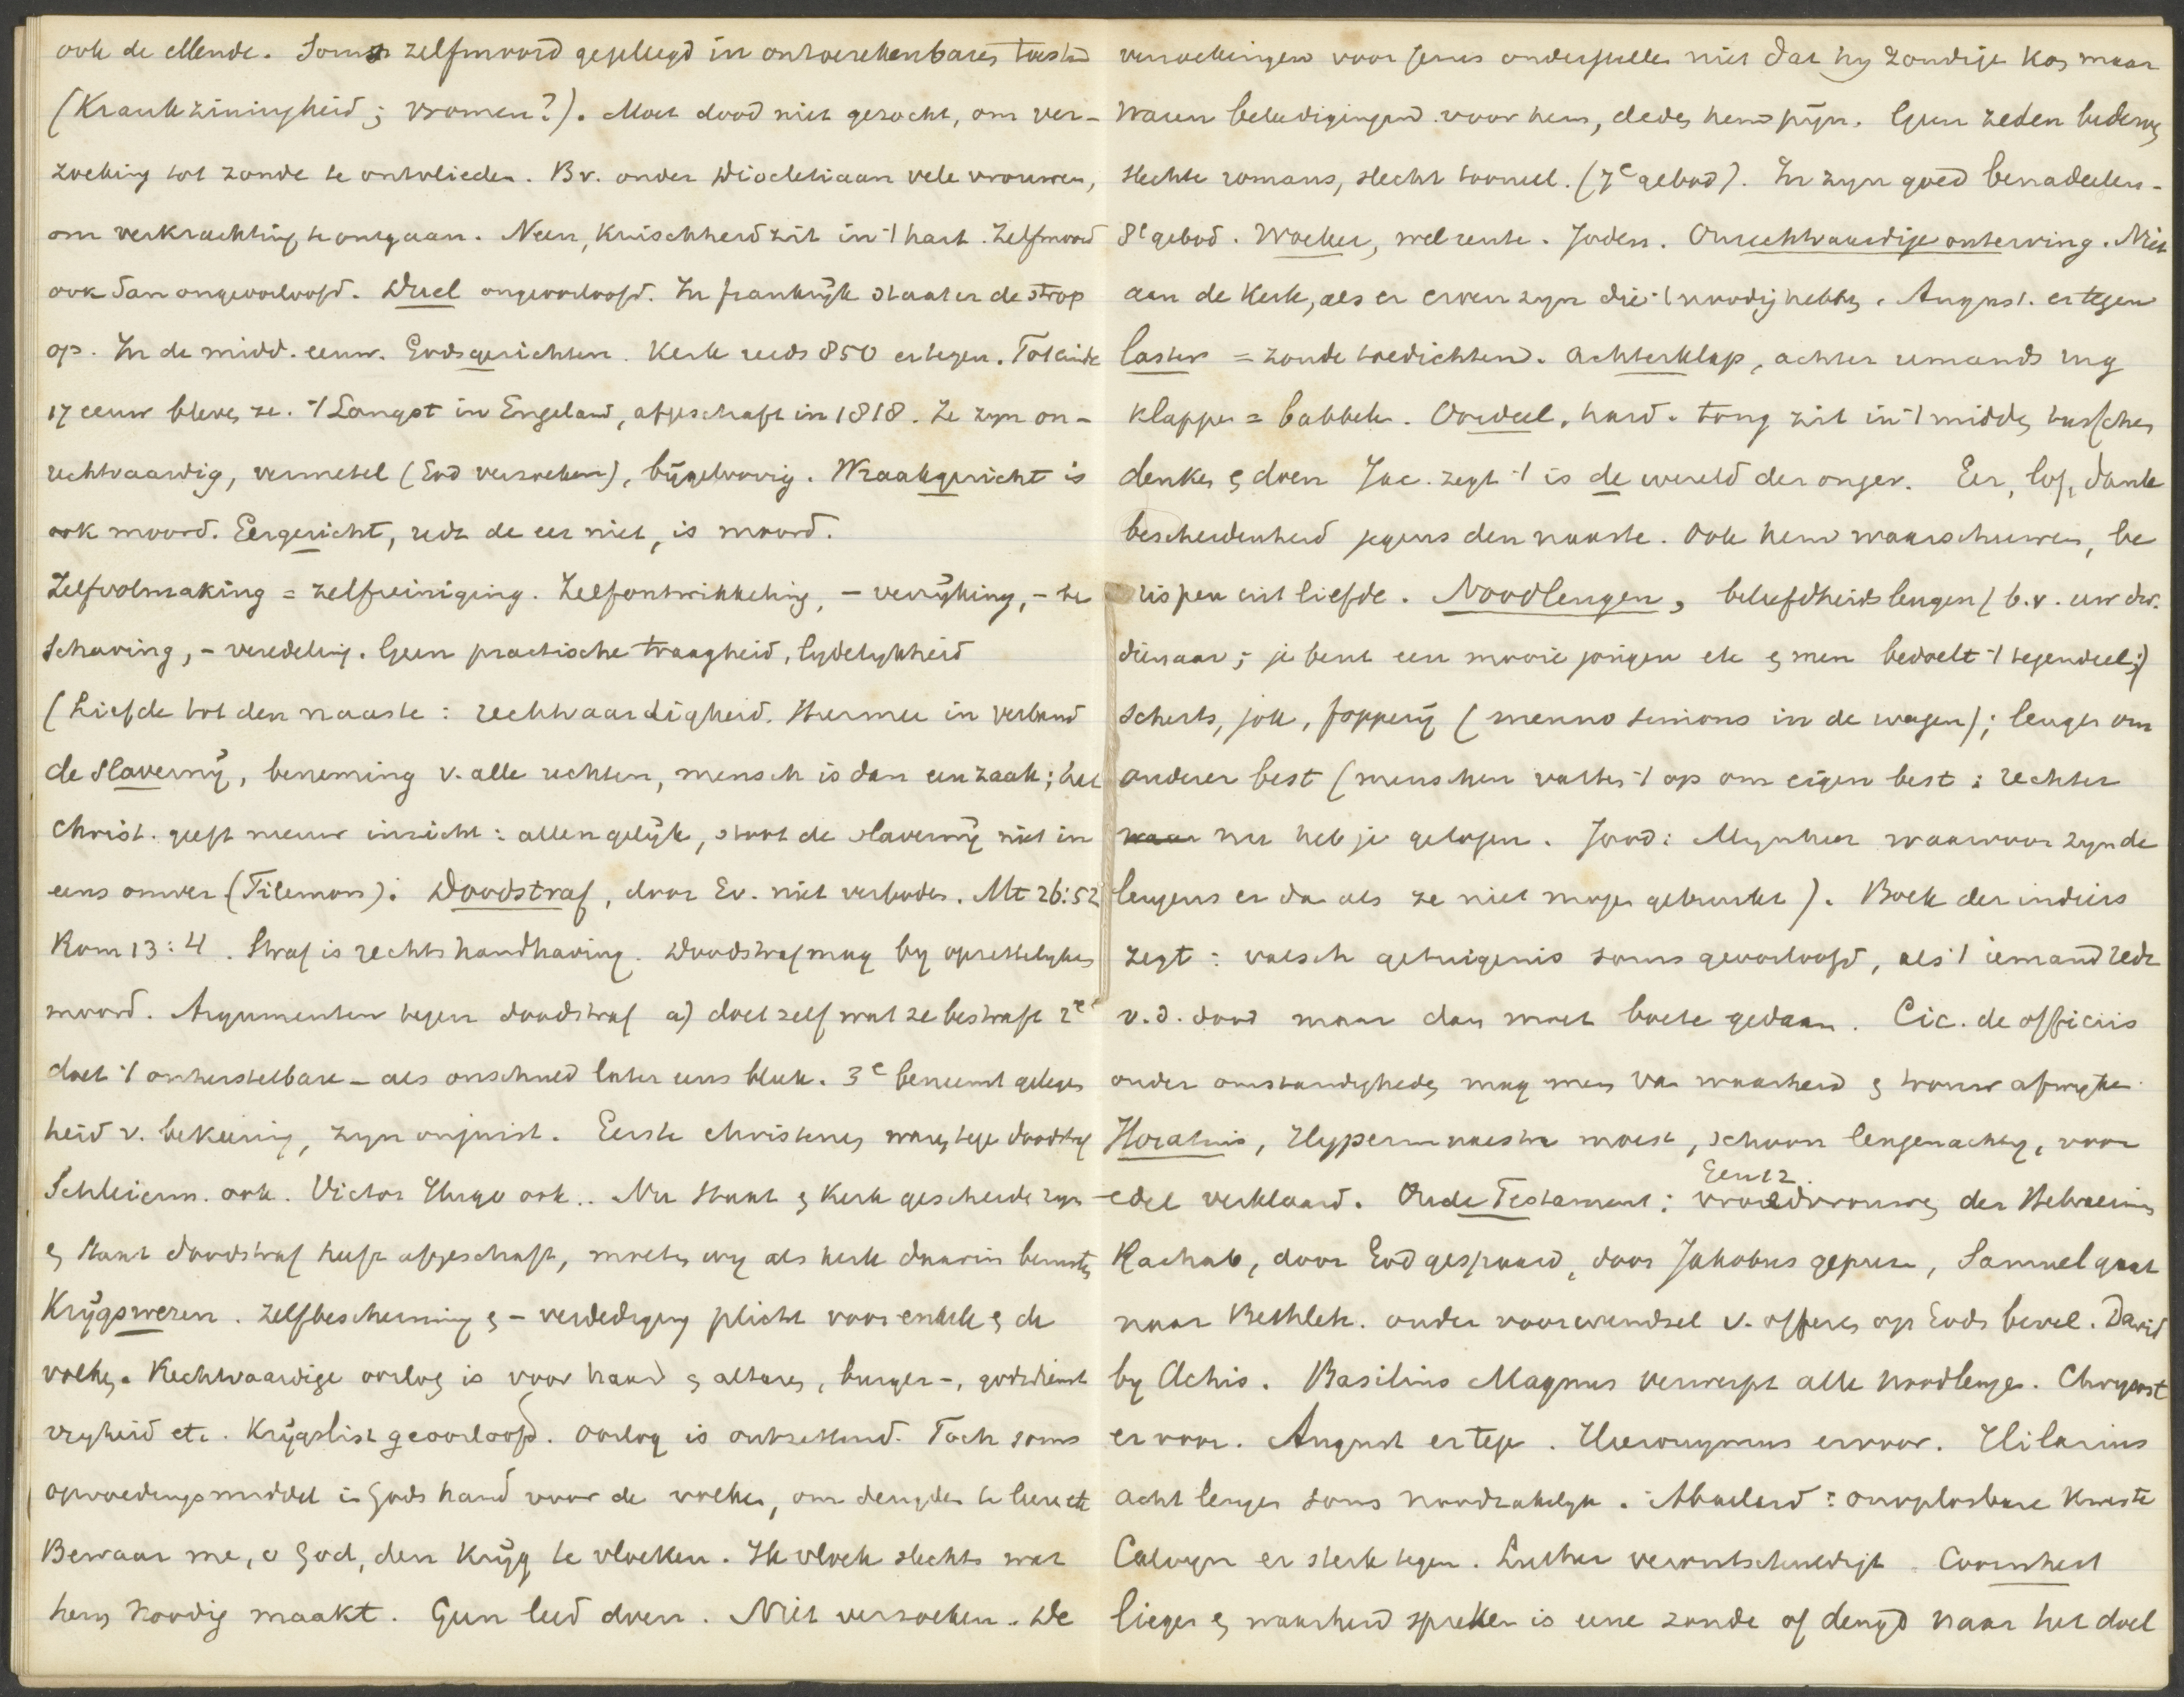 ook de ellende. Soms zelfmoord gepleegd in ontoerekenbaren toestd
(Krankzinnigheid; vromen?). Moet dood niet gezocht, om ver-
zoeking tot zonde te ontvlieden. Bv. onder Diocletiaan vele vrouwen,
om verkrachting te ontgaan. Neen, kuischheid zit in 't hart. Zelfmoord
ook dan ongeoorloofd. Duel ongeoorloofd. In frankrijk staat er de strop
op. In de midd. eeuw. Godsgerichten. Kerk reeds 850 ertegen. Tot einde
17 eeuw bleven ze. 't Langst in Engeland, afgeschaft in 1818. Ze zijn on-
rechtvaardig, vermetel (God verzoeken), bijgeloovig. Wraakgericht is
ook moord. Eergericht, redt de eer niet, is moord.
Zelfvolmaking = zelfreiniging. Zelfontwikkeling, - verrijking, - be
schaving, - veredeling. Geen practische traagheid, lijdelijkheid
(Liefde tot den naaste: rechtvaardigheid. Hiermee in verband
de slavernij, beneming v. alle rechten, mensch is dan een zaak; het
Christ. geeft nieuw inzicht: allen gelijk, stoot de slavernij niet in
eens omver (Filemon). Doodstraf, door Ev. niet verboden. Mt 26:52
Rom 13:4. Straf is rechtshandhaving. Doodstraf mag bij opzettelijken
moord. Argumenten tegen doodstraf a) doet zelf wat ze bestraft 2e
doet 't onherstelbare - als onschuld later eens bleek. 3e beneemt gelegen
heid v. bekeering, zijn onjuist. Eerste christenen waren tegen doodstraf
Schleierm. ook. Victor Hugo ook.. Nu staat en Kerk gescheiden zijn
en staat doodstraf heeft afgeschaft, moeten wij als kerk daarin berusten
Krijgswezen. Zelfbescherming en - verdediging plicht voor enkele en de
volken. Rechtvaardige oorlog is voor haard en altaren, burger-, godsdienst
vrijheid etc. Krijgslist geoorloofd. Oorlog is ontzettend. Toch soms
opvoedingsmiddel in Gods hand voor de volken, om deugden te leeren etc
Bewaar me, o God, den Krijg te vloeken. Ik vloek slechts wat
hem noodig maakt. Geen leed doen. Niet verzoeken. De
verzoekingen voor Jezus onderstellen niet dat hij zondigen kon maar
waren beleedigingen voor hem, deden hem pijn. Geen zeden bederven
slechte romans, slecht tooneel. (7e gebod). In zijn goed benadeelen-
8e gebod. Woeker, wel rente. Joden. Onrechtvaardige onterving. Niet
aan de Kerk, als er erven zijn die 't noodig hebben. August. er tegen
laster = zonde toedichten. Achterklap, achter iemands rug
klappen = babbelen. Oordeel, hard. tong zit in 't midden tusschen
denken en doen Jac. zegt 't is de wereld der onger. Eer, lof, dank
bescheidenheid jegens den naaste. Ook hem waarschuwen, be
rispen uit liefde. Noodleugen, beleefdheidsleugen (b.v. uw dw.
dienaar; je bent een mooie jongen etc en men bedoelt 't tegendeel;)
scherts, jok, fopperij (menno simons in de wagen); leugen om
anderer best (menschen vatten 't op om eigen best: rechter
nu heb je gelogen. Jood: Mijnheer waarvoor zijn de
leugens er dan als ze niet mogen gebruikt). Boek der indiers
zegt: valsch getuigenis soms geoorloofd, als 't iemand redt
v. d. dood maar dan moet boete gedaan. Cic. de officiis
onder omstandigheden mag men van waarheid en trouw afwijken.
Horatius, Hypermnestra moest, schoon leugenachtig, voor
edel verklaard. Oude Testament: Gen 12. vroedvrouwen der Hebraeën
Rachab, door God gespaard, door Jakobus geprezen, Samuel gaat
naar Bethleh. onder voorwendsel v. offeren op Gods bevel. David
bij Achis. Basilius Magnus verwerpt alle noodleugen. Chrysost
er voor. August er tegen. Hieronymus ervoor. Hilarius
acht leugen soms noodzakelijk. Abaelard: onoplosbare kwestie
Calvijn er sterk tegen. Luther verontschuldigt. Coornhert
liegen en waarheid spreken is eene zonde of deugd naar het doel